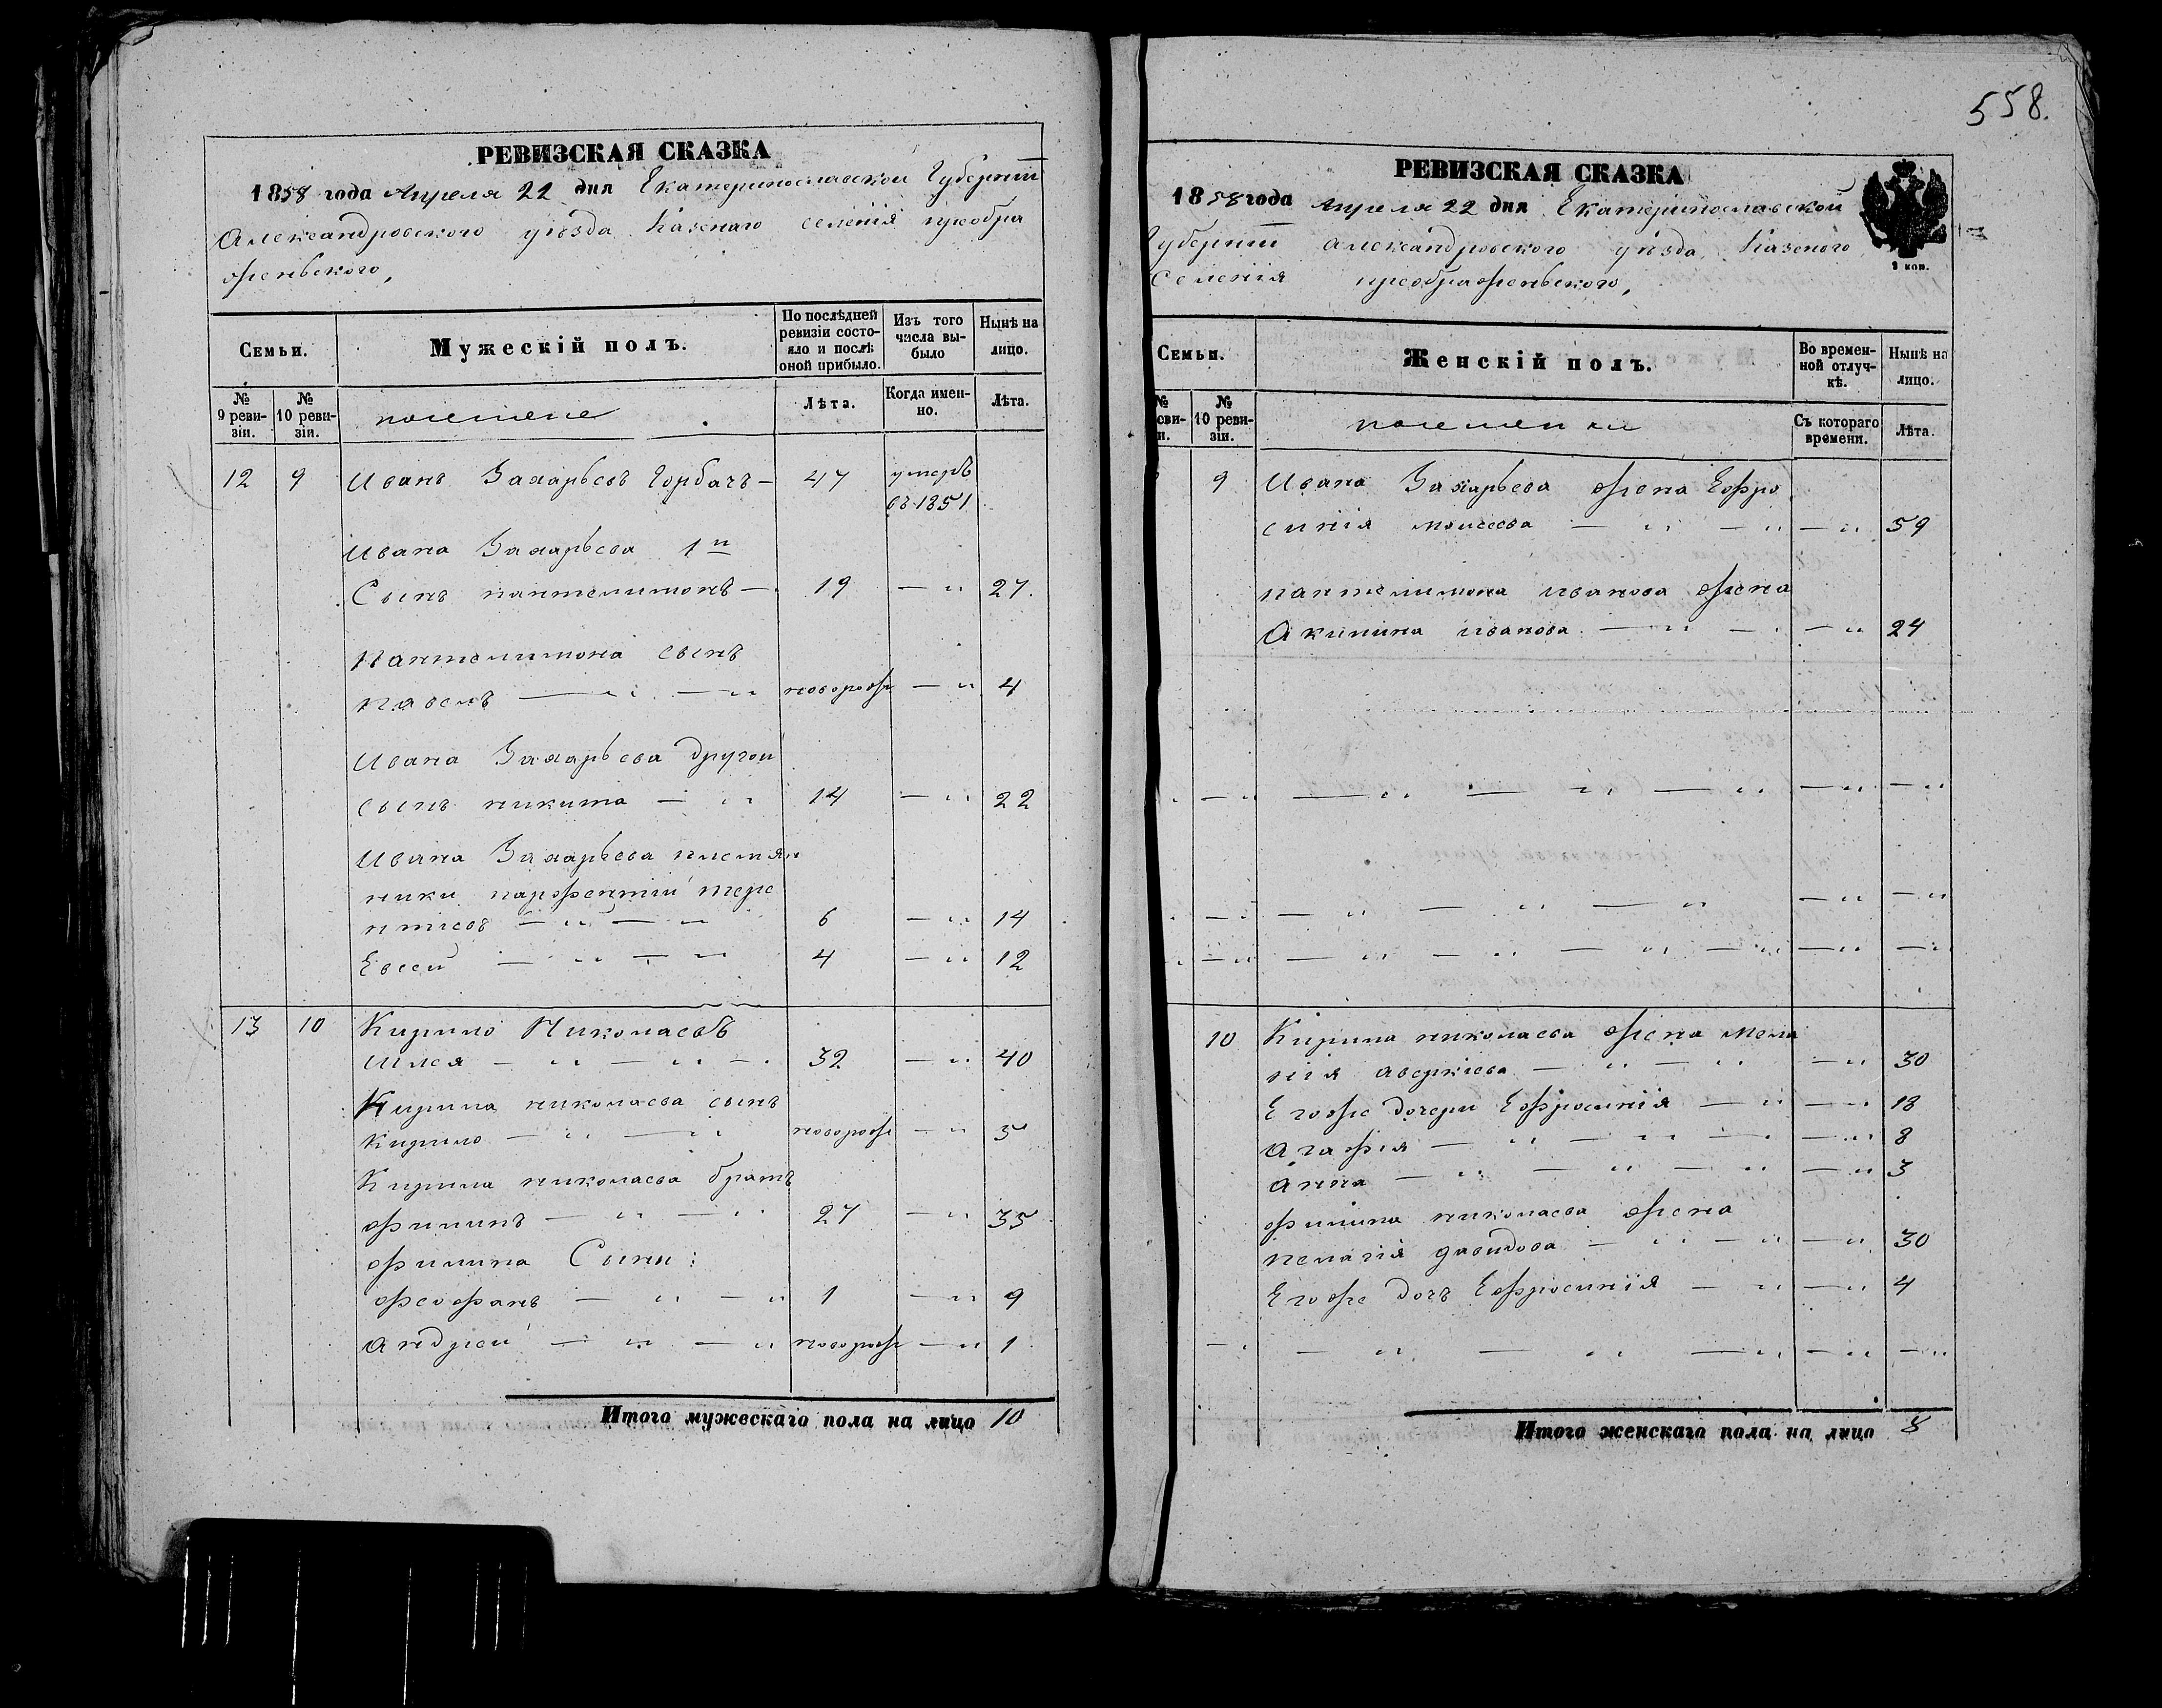 558.
РЕВИЗСКАЯ СКАЗКА
1858 года Апреля 22 дня Екатеринославской Губерніи
Александровского уѣзда Казенаго селенія преобра
женьского,
Семьи.
Мужескій полъ.
По послѣдней ревизіи состояло и послѣ оной прибыло.
Изъ того числа выбыло
Нынѣ на лицо.
№ 9 ревизіи.
№ 10 ревизіи.
Лѣта.
Когда именно.
Лѣта.
12 9 Иванъ Захарьевъ Горбачъ — 47 умеръ
въ 1851
Ивана Захарьева 1й
Сынъ пантелимонъ — 19 — " 27.
Пантелимона сынъ
павелъ — " — " новорож — " 4
Ивана Захарьева другой
сынъ никита — " 14 — " 22
Ивана Захарьева племян
ники парфентій тере
нтіевъ — " — " 6 — " 14
Евсей — " — " 4 — " 12
13 10 Кирило Николаевъ
Шлея — " — " — 32 — " 40
Кирила николаева сынъ
кирило — " — " новорож — " 5
Кирила николаева братъ
филипъ — " — " 27 — " 35
филипа Сыни:
феофанъ — " — " 1 — " 9
андрей — " — " новорож — " 1
Итого мужескаго пола на лицо 10
РЕВИЗСКАЯ СКАЗКА
1858 года апреля 22 дня Екатеринославской
Губерніи александровского уѣзда Казеного
Селенія преображеньского,
2 коп.
Семьи.
Женскій полъ.
Во временной отлучкѣ.
Нынѣ на лицо.
№ 10 ревизіи.
Съ котораго времени.
Лѣта.
9 Ивана Захарьева жена Ефро
синія моисеева — " — " — " 59
пантелимона иванова жена
Акилина иванова — " — — " 24
10 Кирила николаева жена мела
нія аверкіева — " — " — " 30
Егоже дочери Ефросинія — " — " 18
агафія — " — " — — " 8
анна — " — " — " — " 3
филипа николаева жена
пелагія давидова — " — " — " 30
Егоже дочь Ефросинія — " — " 4
Итого женскаго пола на лицо 8